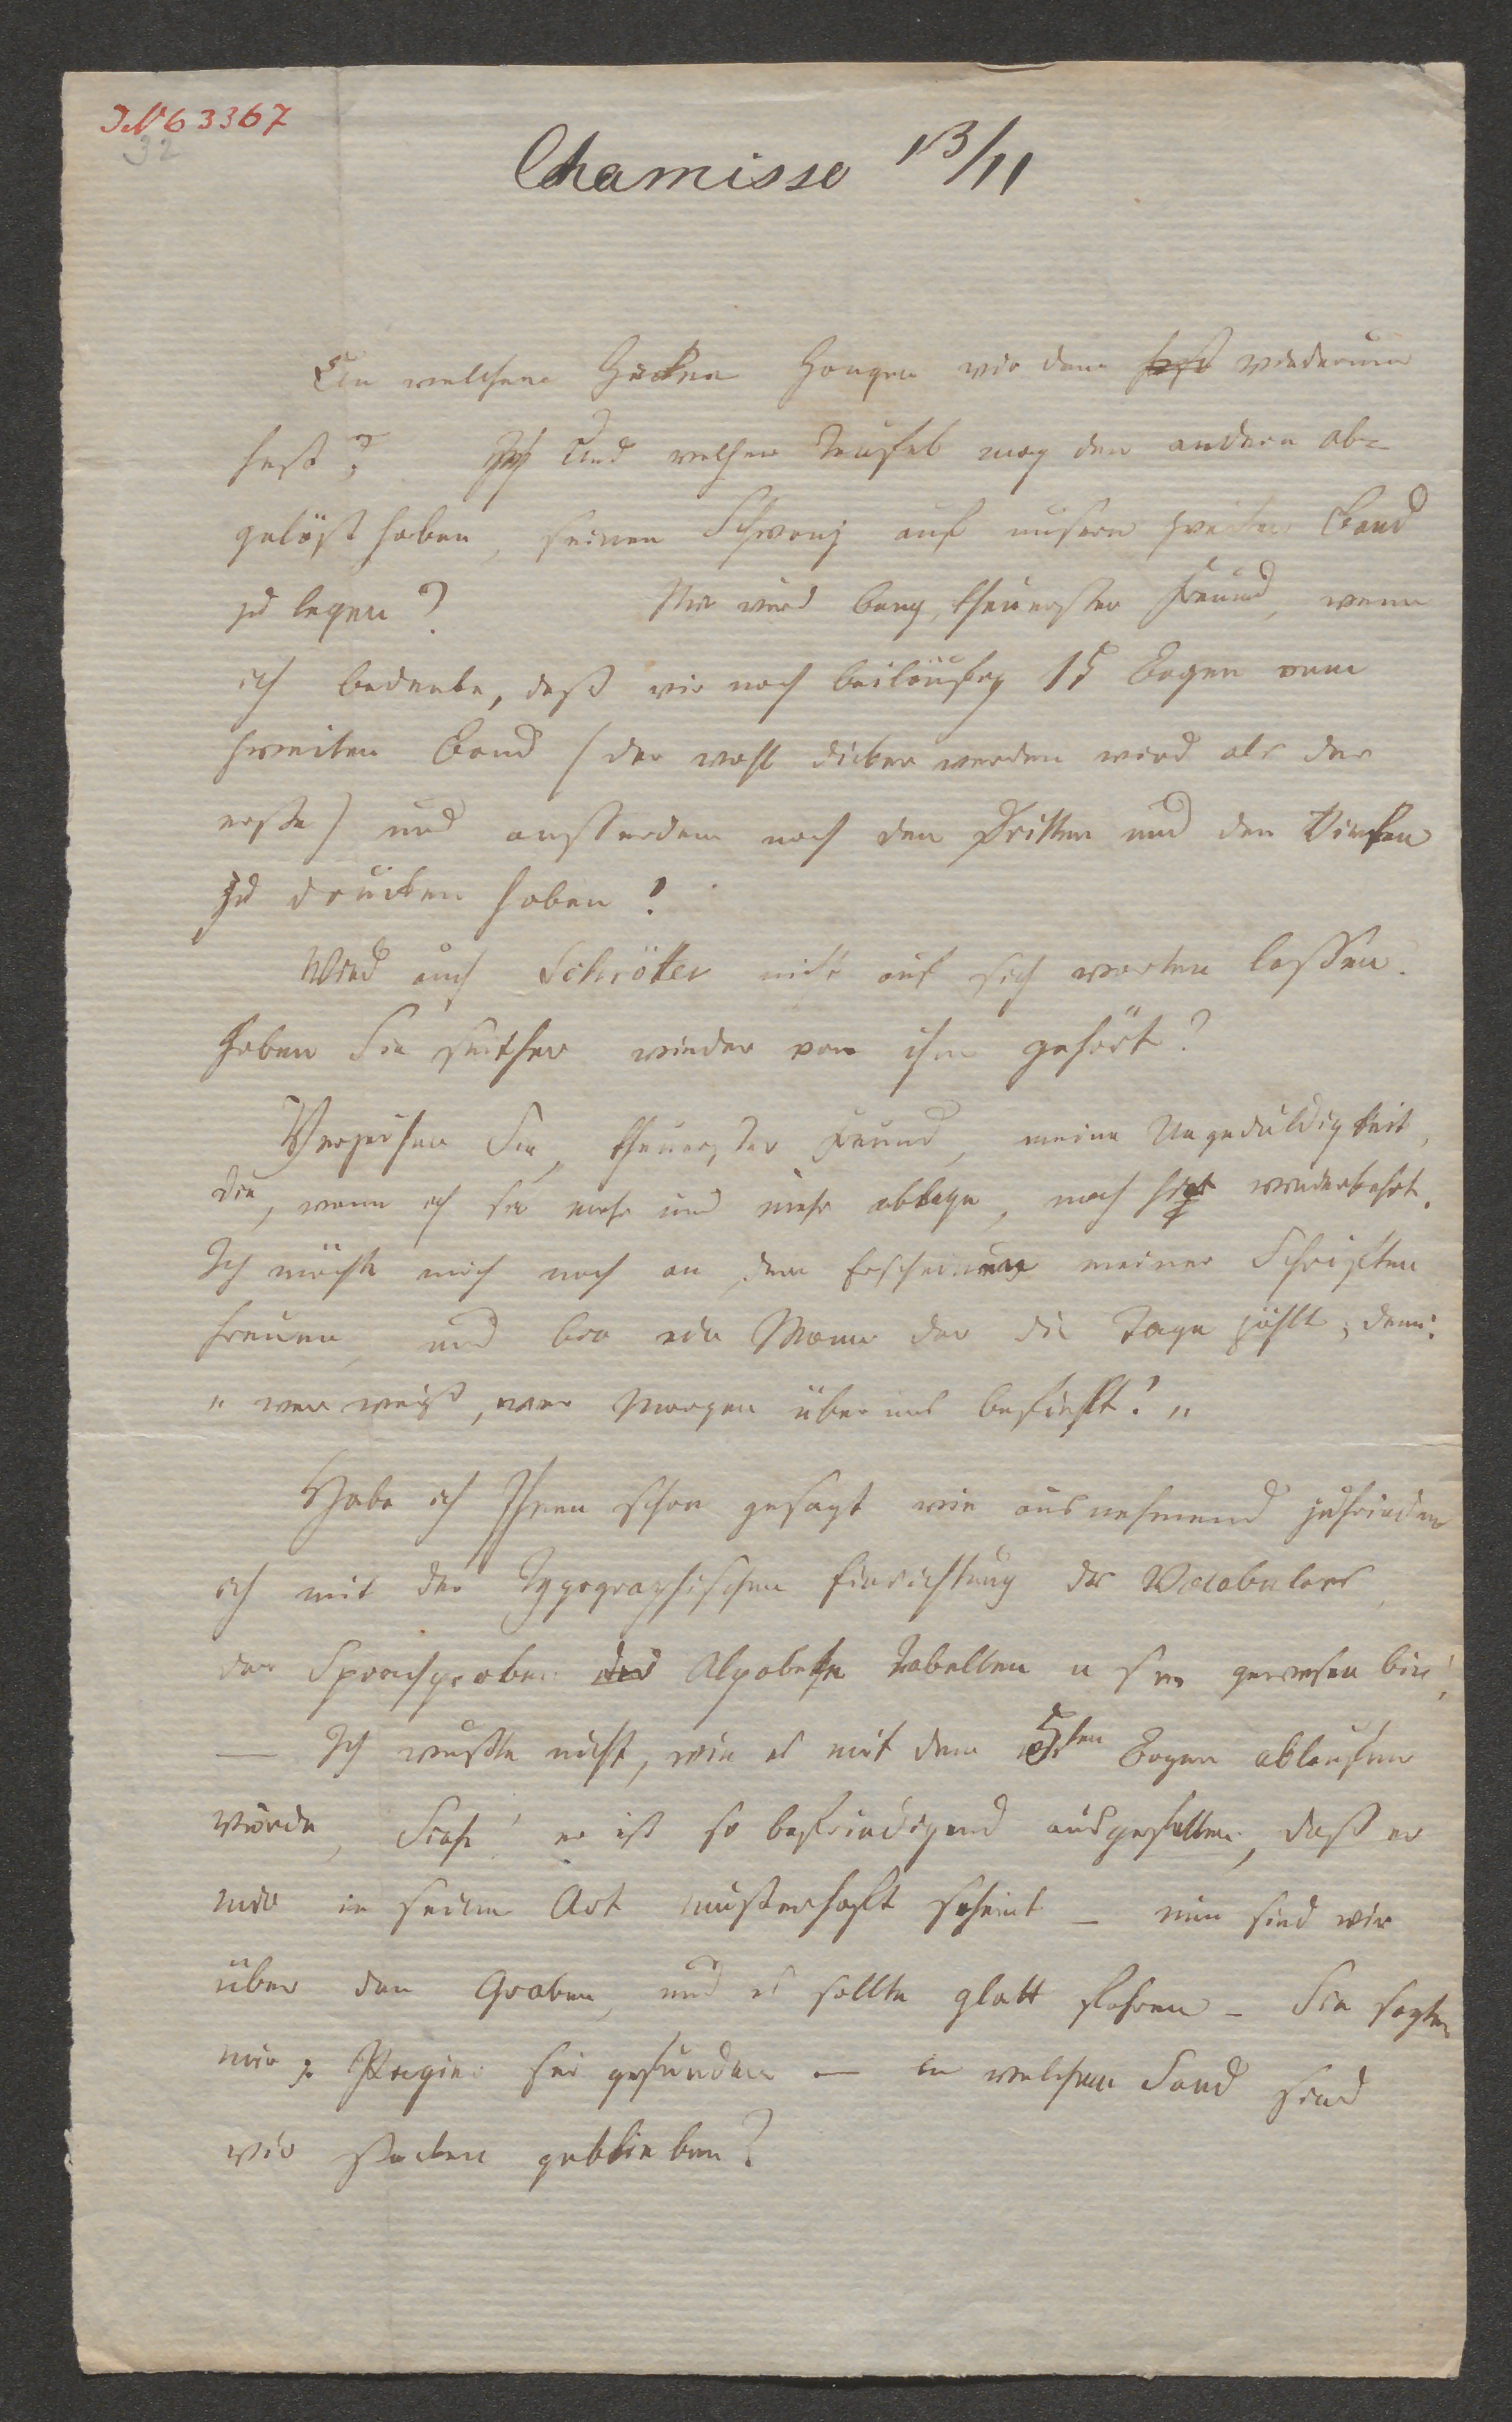 JN 63367
32
Chamisso 13/11
An welchem Haken hangen wir denn fest wiederum
fest? Und welcher Teufel mag den andern ab-
gelöst haben, seinen Schwanz auf unsern zweiten Band
zu legen? Mir wird bang, theuerster Freund, wenn
ich bedenke, daß wir noch beiläufig 15 Bogen vom
zweiten Band (der wohl dicker werden wird als der
erste) und ausserdem noch den Dritten und den Vierten
zu drucken haben!
Wird auch Schröter nicht auf sich warten lassen.
Haben Sie seither wieder von ihm gehört?
Verzeihen Sie, theuerster Freund, meine Ungeduldigkeit,
die, wenn ich sie mehr und mehr ablege, noch wiederkehrt.
Ich möchte mich noch an dem Erscheinen meiner Schriften
freuen, und bin ein Mann der die Tage zählt, denn:
"wer weiß, wer Morgen über uns befiehlt!"
Habe ich Ihnen schon gesagt wie ausnehmend zufrieden
ich mit der Typographischen Einrichtung des Vocabulars,
der Sprachproben der Alpabethe Tabellen u s w gewesen bin!
— Ich wußte nicht, wie es mit dem 5ten Bogen ablaufen
würde, Siehe! er ist so befriedigend ausgefallen, daß er
mir in seiner Art musterhaft scheint – nun sind wir
über den Graben, und es sollte glatt fahren – Sie sagten
mir, Papier sei gefunden — in welchem Sand sind
wir stecken geblieben?